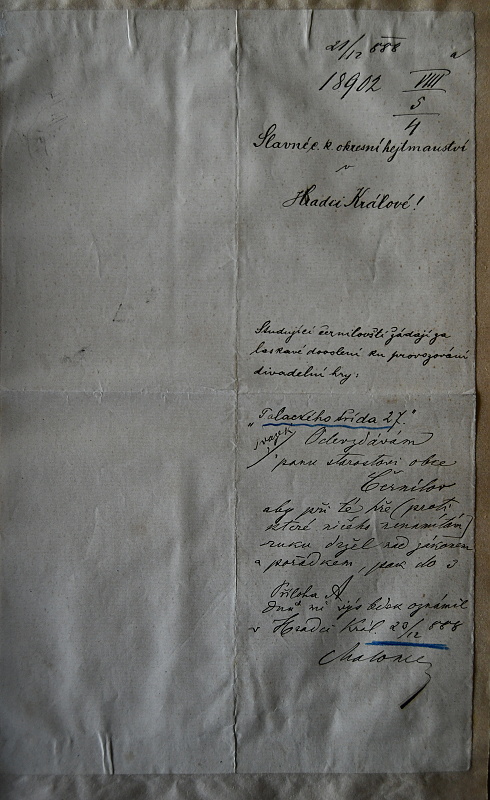 21/12 888
18902 VIII
5
4
Slavné c. k. okresní hejtmanství
v
Hradci Králové!
Studující černilovští žádají za
laskavé dovolení ku provozování
divadelní hry:
„Palackého třída 27."
Odevzdávám
panu starostovi obce
Černilov
aby při té hře (proti
které ničeho nenamítám)
ruku držel nad zákonem
a pořádkem, pak do 3
Příloha A
dnů mi výsledek oznámil
v Hradci Král. 20/12 888